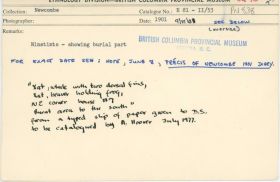 ETHNOLOGY DIVISION - BRITISH COLUMBIA PROVINCIAL MUSEUM
Collection: Newcombe
Catalogue No.: E 81 - II/33
Photographer:
Date: 1901
SEE BELOW
Remarks:
Ninstints - showing burial part
BRITISH COLUMBIA PROVINCIAL MUSEUM
FOR EXACT DATE SEE: NOTE, JUNE 8, PRÉCIS OF NEWCOMBE 1901 DIARY.
"Rat, whale with two dorsal fins,
Rat, beaver holding frog,
NE corner house #7
Burial area to the south"
from a typed ship of paper given to D.S.
to be catalogued by A. Hoover July 1977.